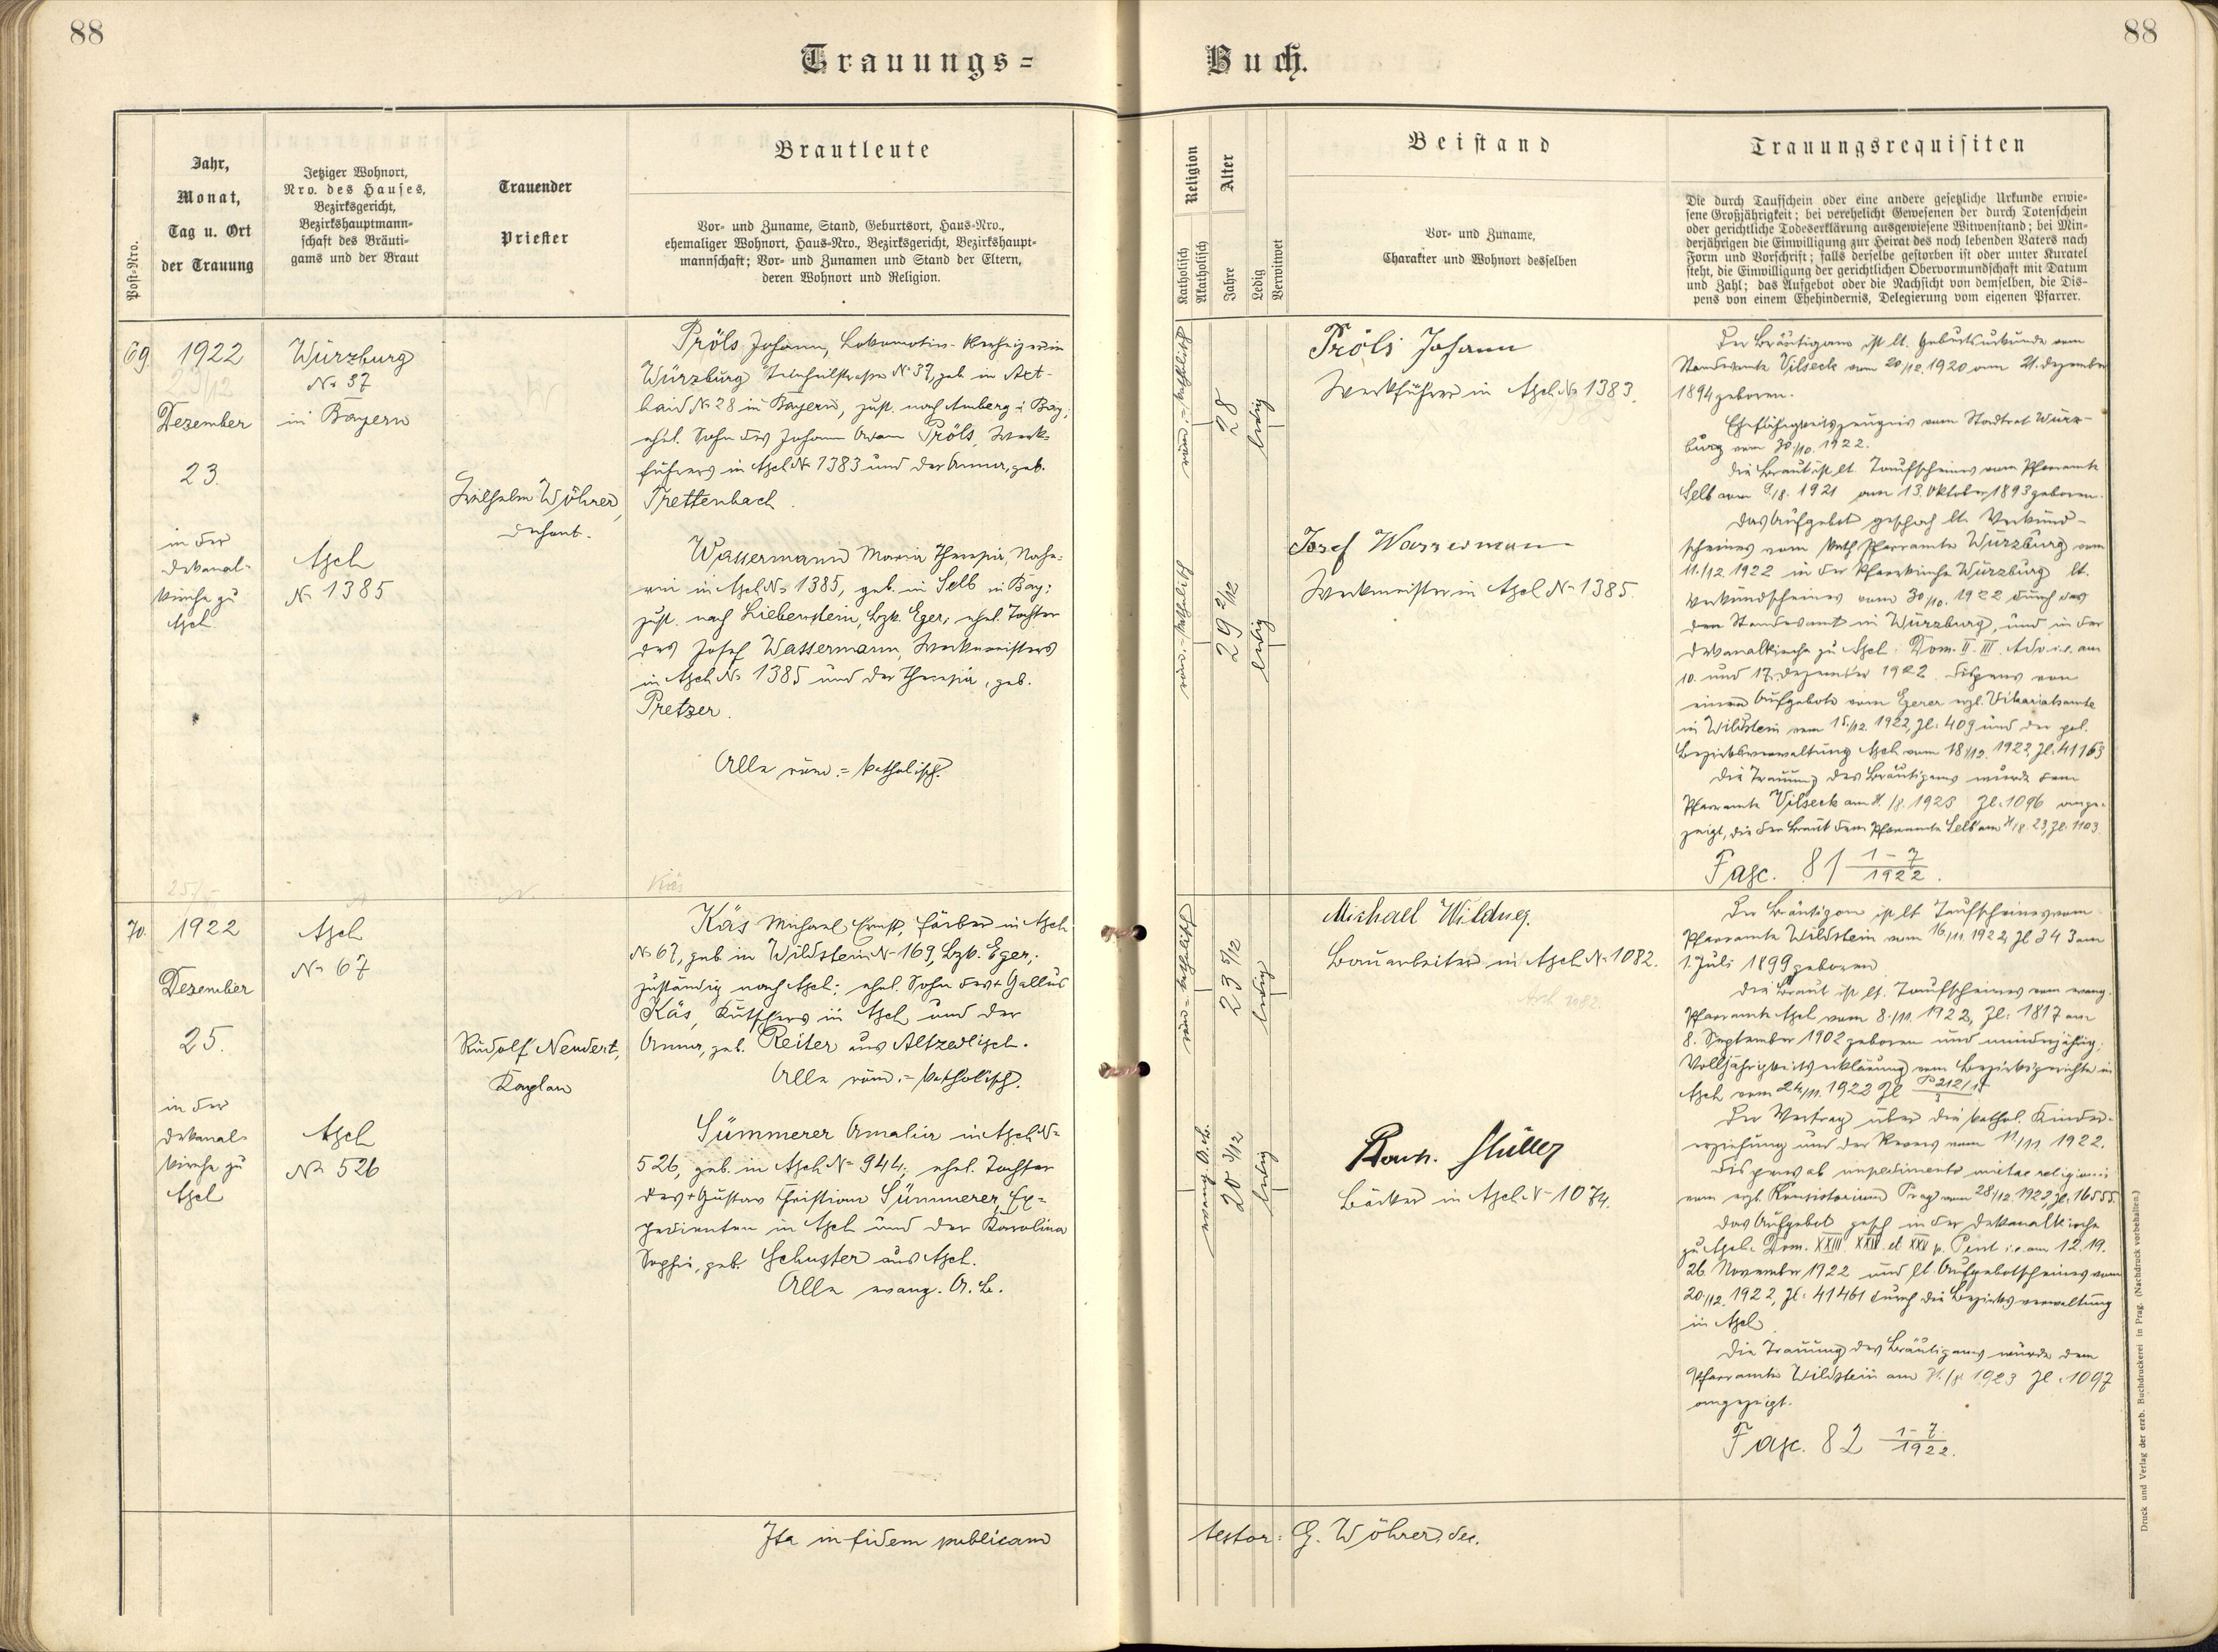 88
Trauungs=
Post-Nro.
Jahr,
Monat,
Tag u. Ort
der Trauung
Jetziger Wohnort,
Nro. des Hauses,
Bezirksgericht,
Bezirkshauptmann-
schaft des Bräuti-
gams und der Braut
Trauender
Priester
Brautleute
Vor- und Zuname, Stand, Geburtsort, Haus-Nro.,
ehemaliger Wohnort, Haus-Nro., Bezirksgericht, Bezirkshaupt-
mannschaft; Vor- und Zunamen und Stand der Eltern,
deren Wohnort und Religion.
69.
1922
Dezember
23.
in der
Dekanal-
kirche zu
Asch
Würzburg
N° 37
in Bayern
Asch
N° 1385
Wilhelm Wöhrer,
Dechant.
Pröls Johann, Lokomotiv-
Würzburg N° 37, geb. in Axt-
haid N° 28 in Bayern, zust. nach Amberg i. Bay.;
ehel. Sohn des Johann Adam Pröls, Werk-
führers in Asch N° 1383 und der Anna, geb.
Trettenbach.
Wassermann Maria Theresia, Nähe-
rin in Asch N° 1385, geb. in Selb in Bay.;
zust. nach Liebenstein, Bzk. Eger; ehel. Tochter
des Josef Wassermann, Werkmeisters
in Asch N° 1385 und der Theresia, geb.
Pretzer.
Alle röm.=katholisch.
70.
1922
Dezember
25.
in der
Dekanal-
kirche zu
Asch
Asch
N° 67
Asch
N° 526
Rudolf Neudert,
Kaplan
Käs
Käs Michael Ernst, Färber in Asch
N° 67, geb. in Wildstein N° 169, Bzk. Eger;
zuständig nach Asch; ehel. Sohn des † Gallus
Käs, Kutschers in Asch und der
Anna, geb. Reiter aus Altzedlisch.
Alle röm.=katholisch.
Sümmerer Amalia in Asch N°
526, geb. in Asch N° 944; ehel. Tochter
des † Gustav Christian Sümmerer, Ex-
pedienten in Asch und der Karolina
Sophie, geb. Schuster aus Asch.
Alle evang. A. B.
Ita in fidem publicam
88
Buch.
Religion
Katholisch
Akatholisch
Alter
Jahre
Ledig
Verwitwet
Beistand
Vor- und Zuname,
Charakter und Wohnort desselben
Trauungsrequisiten
Die durch Taufschein oder eine andere gesetzliche Urkunde erwie-
sene Großjährigkeit; bei verehelicht Gewesenen der durch Totenschein
oder gerichtliche Todeserklärung ausgewiesene Witwenstand; bei Min-
derjährigen die Einwilligung zur Heirat des noch lebenden Vaters nach
Form und Vorschrift; falls derselbe gestorben ist oder unter Kuratel
steht, die Einwilligung der gerichtlichen Obervormundschaft mit Datum
und Zahl; das Aufgebot oder die Nachsicht von demselben, die Dis-
pens von einem Ehehindernis, Delegierung vom eigenen Pfarrer.
röm.=katholisch
28
ledig
Pröls Johann
Werkführer in Asch N° 1383.
röm.=katholisch
29 2/12
ledig
Josef Wassermann
Werkmeister in Asch N° 1385.
Der Bräutigam ist lt. Geburtsurkunde vom
Standesamte Vilseck vom 20/12. 1920 am 21. Dezember
1894 geboren.
Ehefähigkeitszeugnis vom Stadtrat Würz-
burg vom 30/10. 1922.
Die Braut ist lt. Taufscheines vom Pfarramte
Selb vom 9/8. 1921 am 13. Oktober 1893 geboren.
Das Aufgebot geschah lt. Verkünd-
scheines vom kath. Pfarramte Würzburg vom
11./12. 1922 in der Pfarrkirche Würzburg lt.
Verkündscheines vom 30/10. 1922 durch das
Standesamt in Würzburg, und in der
Dekanalkirche zu Asch: Dom. II. III. Adv. i.e. am
10. und 17. Dezember 1922. Dispens von
einem Aufgebote vom Egerer erzb. Vikariatsamte
in Wildstein vom 15./12. 1922, Zl. 409 und der pol.
Bezirksverwaltung Asch vom 18./12. 1922, Zl. 41163
Die Trauung des Bräutigams wurde dem
Pfarramte Vilseck am /8. 1923 Zl. 1096 ange-
zeigt, die der Braut dem Pfarramte Selb am /8. 23, Zl. 1103.
Fasc. 81 1-7/1922.
röm.=katholisch
23 5/12
ledig
Michael Wildner.
Bauarbeiter in Asch N° 1082.
Asch 1082.
evang. A. B.
20 3/12
ledig
Müller
Bäcker in Asch N° 1074.
Der Bräutigam ist lt. Taufscheines vom
Pfarramte Wildstein vom 16/11. 1922, Zl. 343 am
1. Juli 1899 geboren
Die Braut ist lt. Taufscheines vom evang.
Pfarramte Asch vom 8./11. 1922, Zl. 1817 am
8. September 1902 geboren und minderjährig;
Volljährigkeitserklärung vom Bezirksgerichte in
Asch vom 24/11. 1922 Zl.
Der Vertrag über die kathol. Kinder-
erziehung und der Revers vom 11/11. 1922.
Dispens ab impedimento mixtae religionis
vom erzb. Konsistorium Prag vom 28/12. 1922, Zl. 16555.
Das Aufgebot gesch. in der Dekanalkirche
zu Asch: Dom. XXIII. XXIV. et XXV p. Pent. i.e. am 12. 19.
26. November 1922 und lt. Aufgebotscheines vom
20/12. 1922, Zl. 41461 durch die Bezirksverwaltung
in Asch
Die Trauung des Bräutigams wurde dem
Pfarramte Wildstein am /8. 1923 Zl. 1097
angezeigt.
Fasc. 82 1-7/1922.
testor: G. Wöhrer, dec.
Druck und Verlag der erzb. Buchdruckerei in Prag. (Nachdruck vorbehalten.)